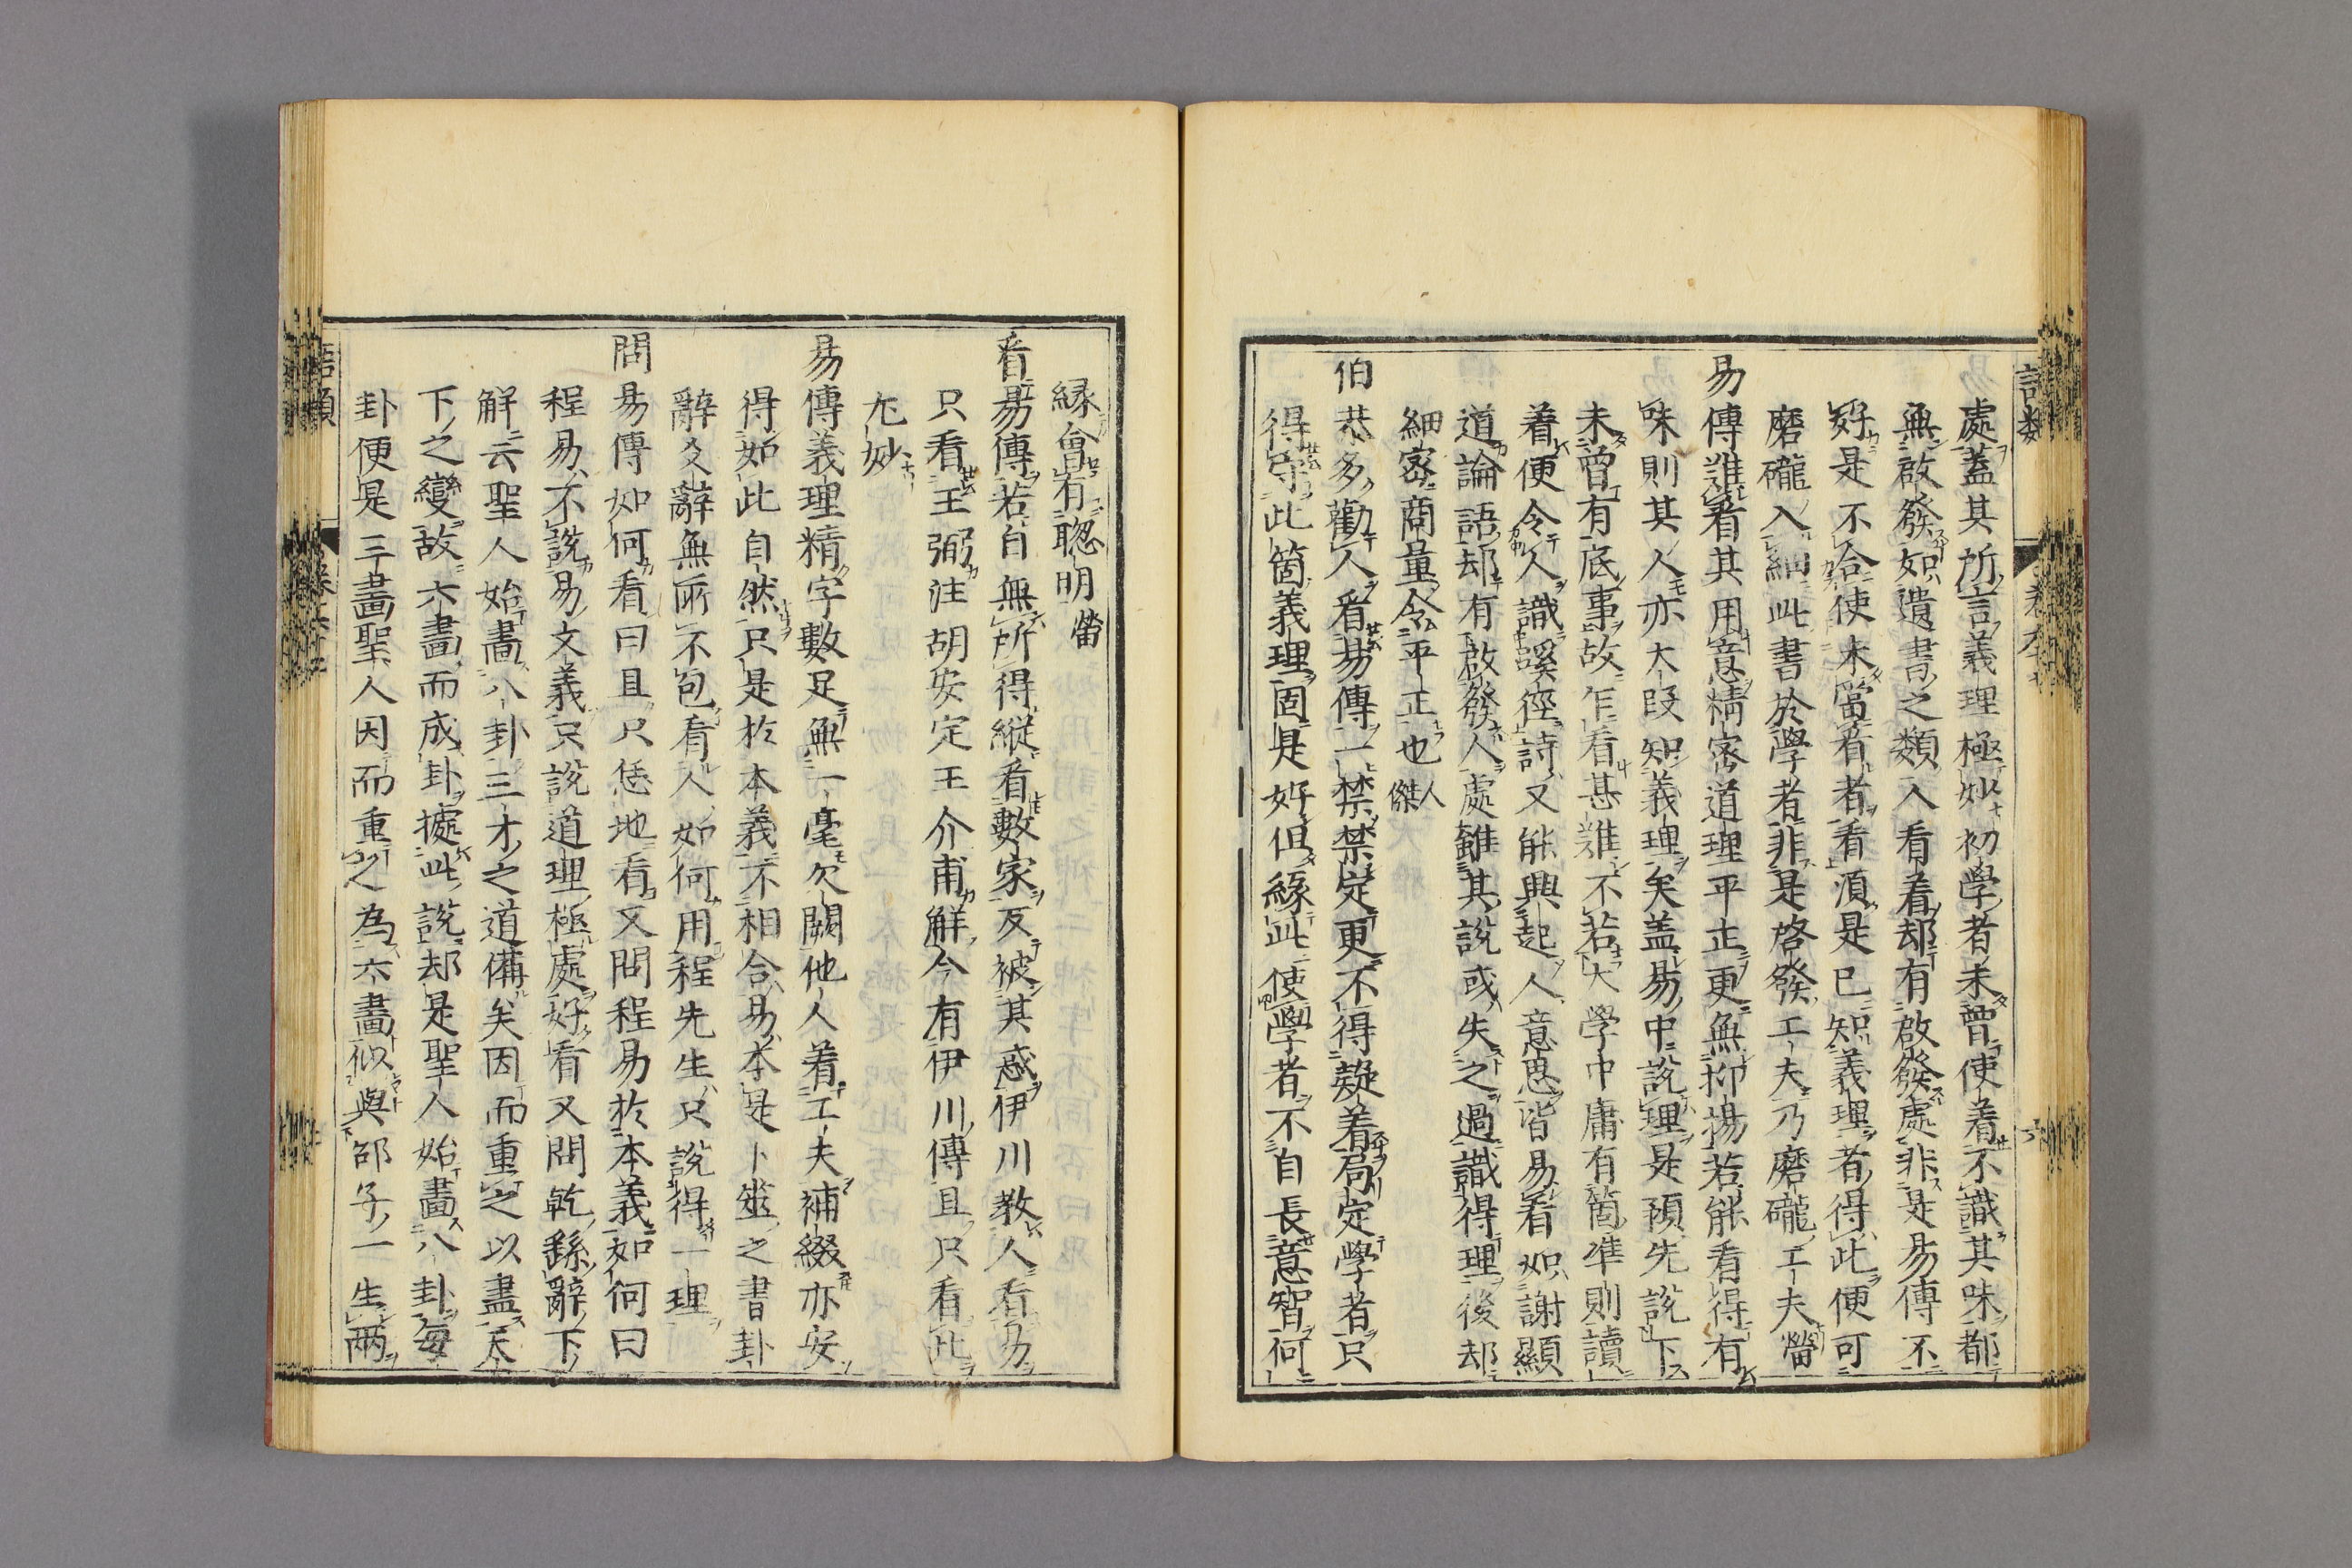 處蓋其所言義理極妙初學者未曾使着不識其味都
無啟發如遺書之類入看着却有啟發處非是易傳不
好是不合使未當看者看須是已知義理者得此便可
磨礲入細此書於學者非是啓發工夫乃磨礲工夫㽦
易傳難看其用意精密道理平正更無抑揚若能看得有
味則其人亦大段知義理矣盖易中說理是預先說下
未曾有底事故乍看甚難不若大學中庸有箇準則讀
着便令人識蹊徑詩又能興起人意思皆易看如謝顯
道論語却有啟發人處雖其說或失之過識得理後却
細密商量令平正也人傑
伯恭多勸人看易傳一禁禁定更不得疑着局定學者只
得守此箇義理固是好但緣此使學者不自長意智何
縁會有聡明㽦
看易傳若自無所得縱看數家反被其惑伊川教人看易
只看王弼注胡安定王介甫解今有伊川傳且只看此
尤妙
易傳義理精字數足無一毫欠闕他人着工夫補綴亦安
得如此自然只是於本義不相合易本是卜筮之書卦
辭爻辭無所不包看人如何用程先生只說得一理
問易傳如何看曰且只恁地看又問程易於本義如何曰
程易不說易文義只說道理極處好看又問乾繇辭下
解云聖人始畫八卦三才之道備矣因而重之以盡天
下之變故六畫而成卦據此說却是聖人始畫八卦每
卦便是三畫聖人因而重之為六畫似與邵子一生兩
語類